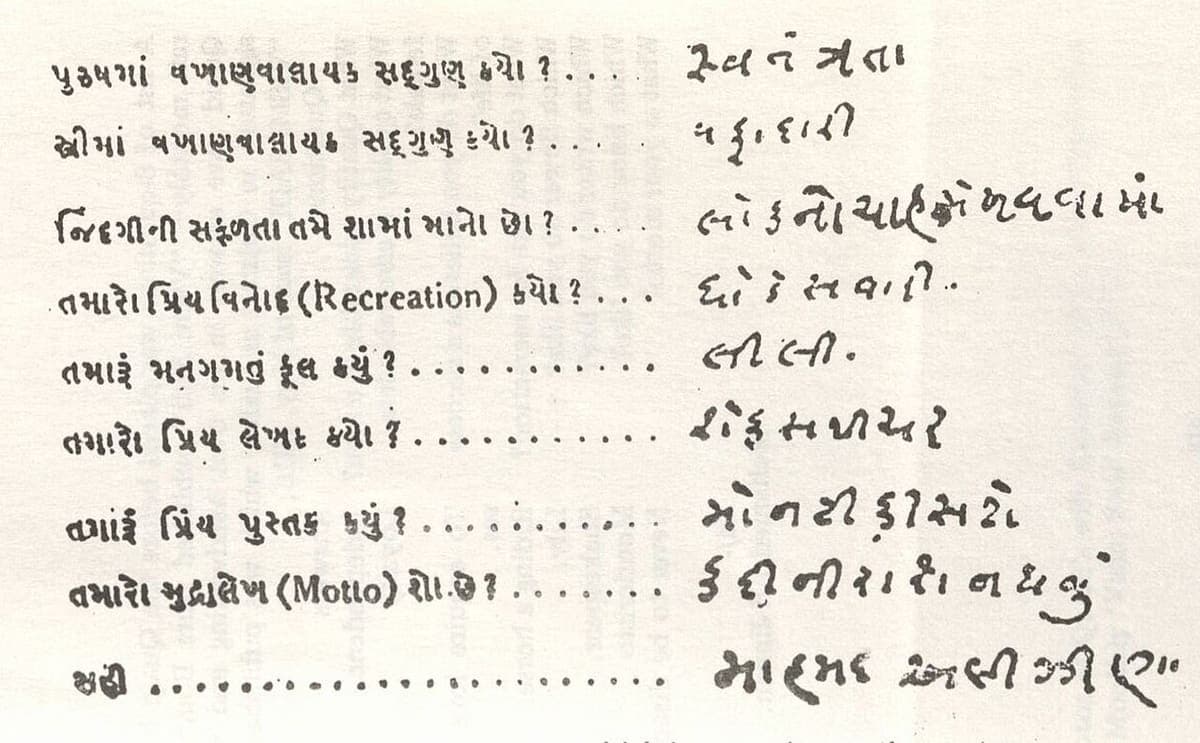 પુરુષમાં વખાણવાલાયક સદ્‌ગુણ કયો ? . . . . સ્વતંત્રતા
સ્ત્રીમાં વખાણવાલાયક સદ્‌ગુણ કયો ? . . . . વફાદારી
જિંદગીની સફળતા તમે શામાં માનો છો ? . . . . લોકનો ચાહ મેળવવામાં
તમારો પ્રિય વિનોદ (Recreation) કયો ? . . . ઘોડે સવારી.
તમારૂં મનગમતું ફૂલ કયું ? . . . . . . . . . . . લીલી.
તમારો પ્રિય લેખક કયો ? . . . . . . . . . . . શેક્સપીઅર
તમારૂં પ્રિય પુસ્તક કયું ? . . . . . . . . . . . મોનટી ક્રીસટો
તમારો મુદ્રાલેખ (Motto) શો છે ? . . . . . . . કદી નીરાશ ન થવું
સહી . . . . . . . . . . . . . . . . . . . . . . . . માહમદ અલી ઝીણા